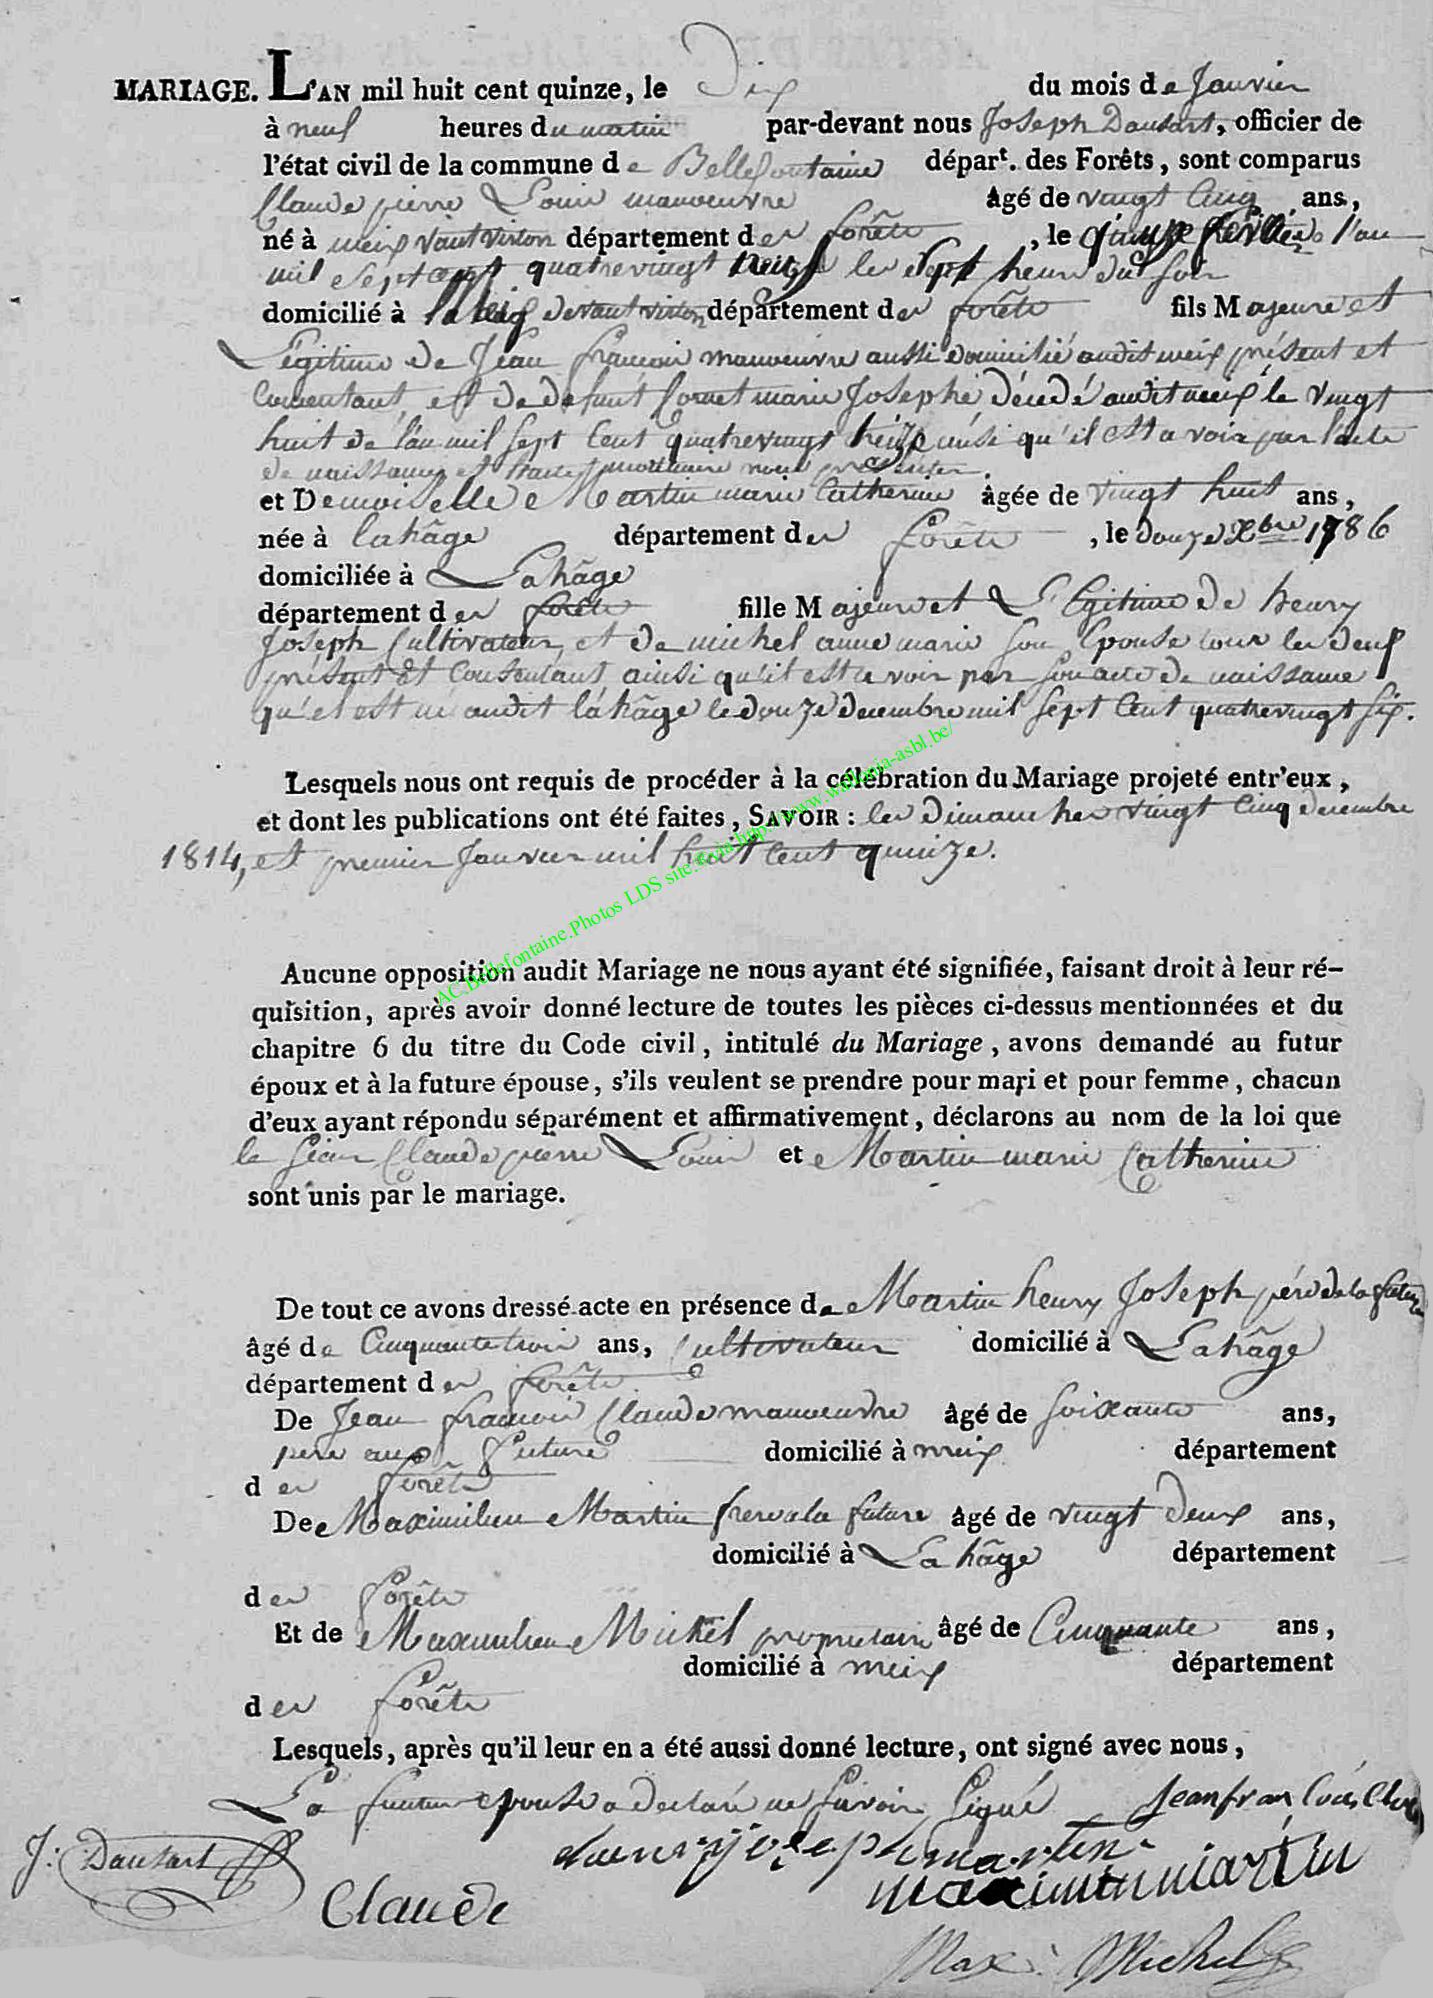 MARIAGE. L'AN mil huit cent quinze, le Dix du mois de Janvier
à neuf heures du matin par-devant nous Joseph Dausart, officier de
l'état civil de la commune de Bellefontaine épart. des Forêts, sont comparus
Claude pierre Louis manoeuvre âgé de vingt Cinq ans,
né à meix vant virton département des forêts, le l'an
mil sept cent quatrevingt les sept heures du soir
domicilié à Meix devant virton département des forêts fils Majeure et
Légitime de Jean francois manoeuvre aussi domicilié audit meix présent et
Consentant, et de defunt Cornet marie Josephe décédé audit meix le vingt
huit de l'an mil sept Cent quatrevingt treize ainsi qu'il est a voir par l'acte
de naissance et mortuaire nous
et Demoiselle Martin marie Catherine âgée de vingt huit ans,
née à lahâge département des forêts, le douze Xbre 1786
domiciliée à Lahâge
département des forêts fille Majeur et Légitime de henry
Joseph Cultivateur, et de michel anne marie son Epouse tous les deux
présent Et Consentant ainsi qu'il est a voir par son acte de naissance
qu'el est né audit lahâge le douze decembre mil sept Cent quatrevingt six.
Lesquels nous ont requis de procéder à la célébration du Mariage projeté entr'eux,
et dont les publications ont été faites, SAVOIR : les Dimanches vingt Cinq decembre
1814, et premier Janvier mil huit Cent quinze.
AC.Bellefontaine.Photos LDS site. via http://www.wallonia-asbl.be/
Aucune opposition audit Mariage ne nous ayant été signifiée, faisant droit à leur ré-
quisition, après avoir donné lecture de toutes les pièces ci-dessus mentionnées et du
chapitre 6 du titre du Code civil, intitulé du Mariage, avons demandé au futur
époux et à la future épouse, s'ils veulent se prendre pour mari et pour femme, chacun
d'eux ayant répondu séparément et affirmativement, déclarons au nom de la loi que
le Claude pierre Louis et Martin marie Catherine
sont unis par le mariage.
De tout ce avons dressé acte en présence de Martin henry Joseph pére de la future
âgé de Cinquante trois ans, Cultivateur domicilié à Lahâge
département des forêts
De Jean francois Claude manoeuvre âgé de soixante ans,
pere aux future domicilié à meix département
des forêts
De Maximilien Martin frere a la future âgé de vingt deux ans,
domicilié à La hâge département
des forêts
Et de Maximilien Michel propriétaire âgé de Cinquante ans,
domicilié à meix département
des forêts
Lesquels, après qu'il leur en a été aussi donné lecture, ont signé avec nous,
La future epouse a declaré ne savoir signé jean francois
J: Dausart martin
Claude martin
Max: Michel